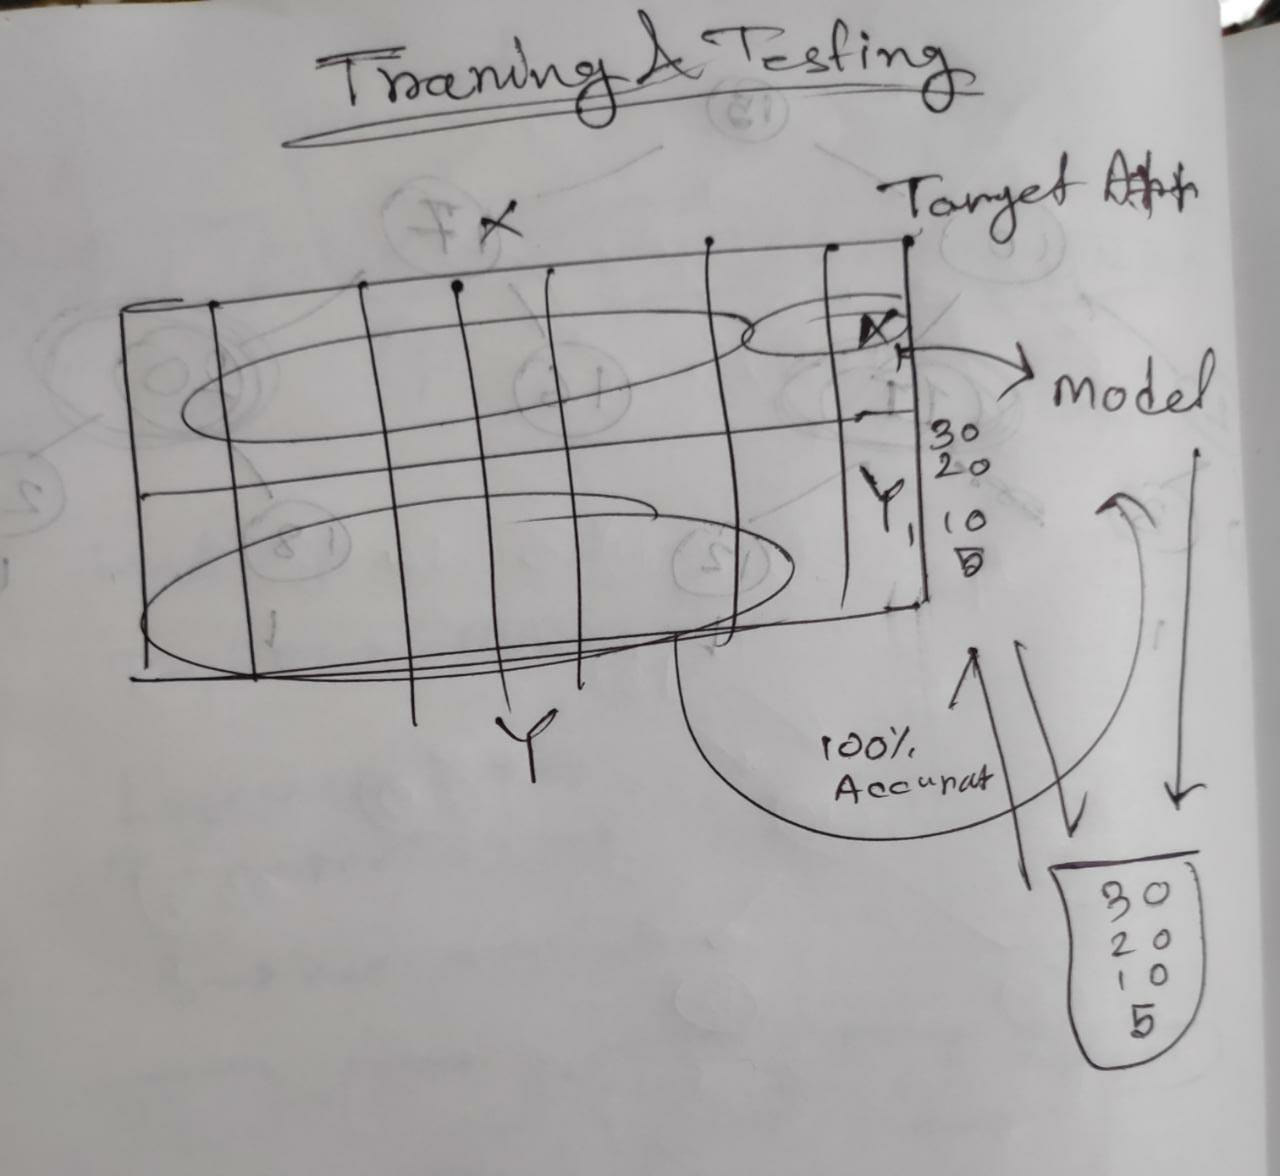 Traning & Testing
Target App
X
X
Model
30
20
Y1
10
5
Y
100%
Accurat
30
20
10
5